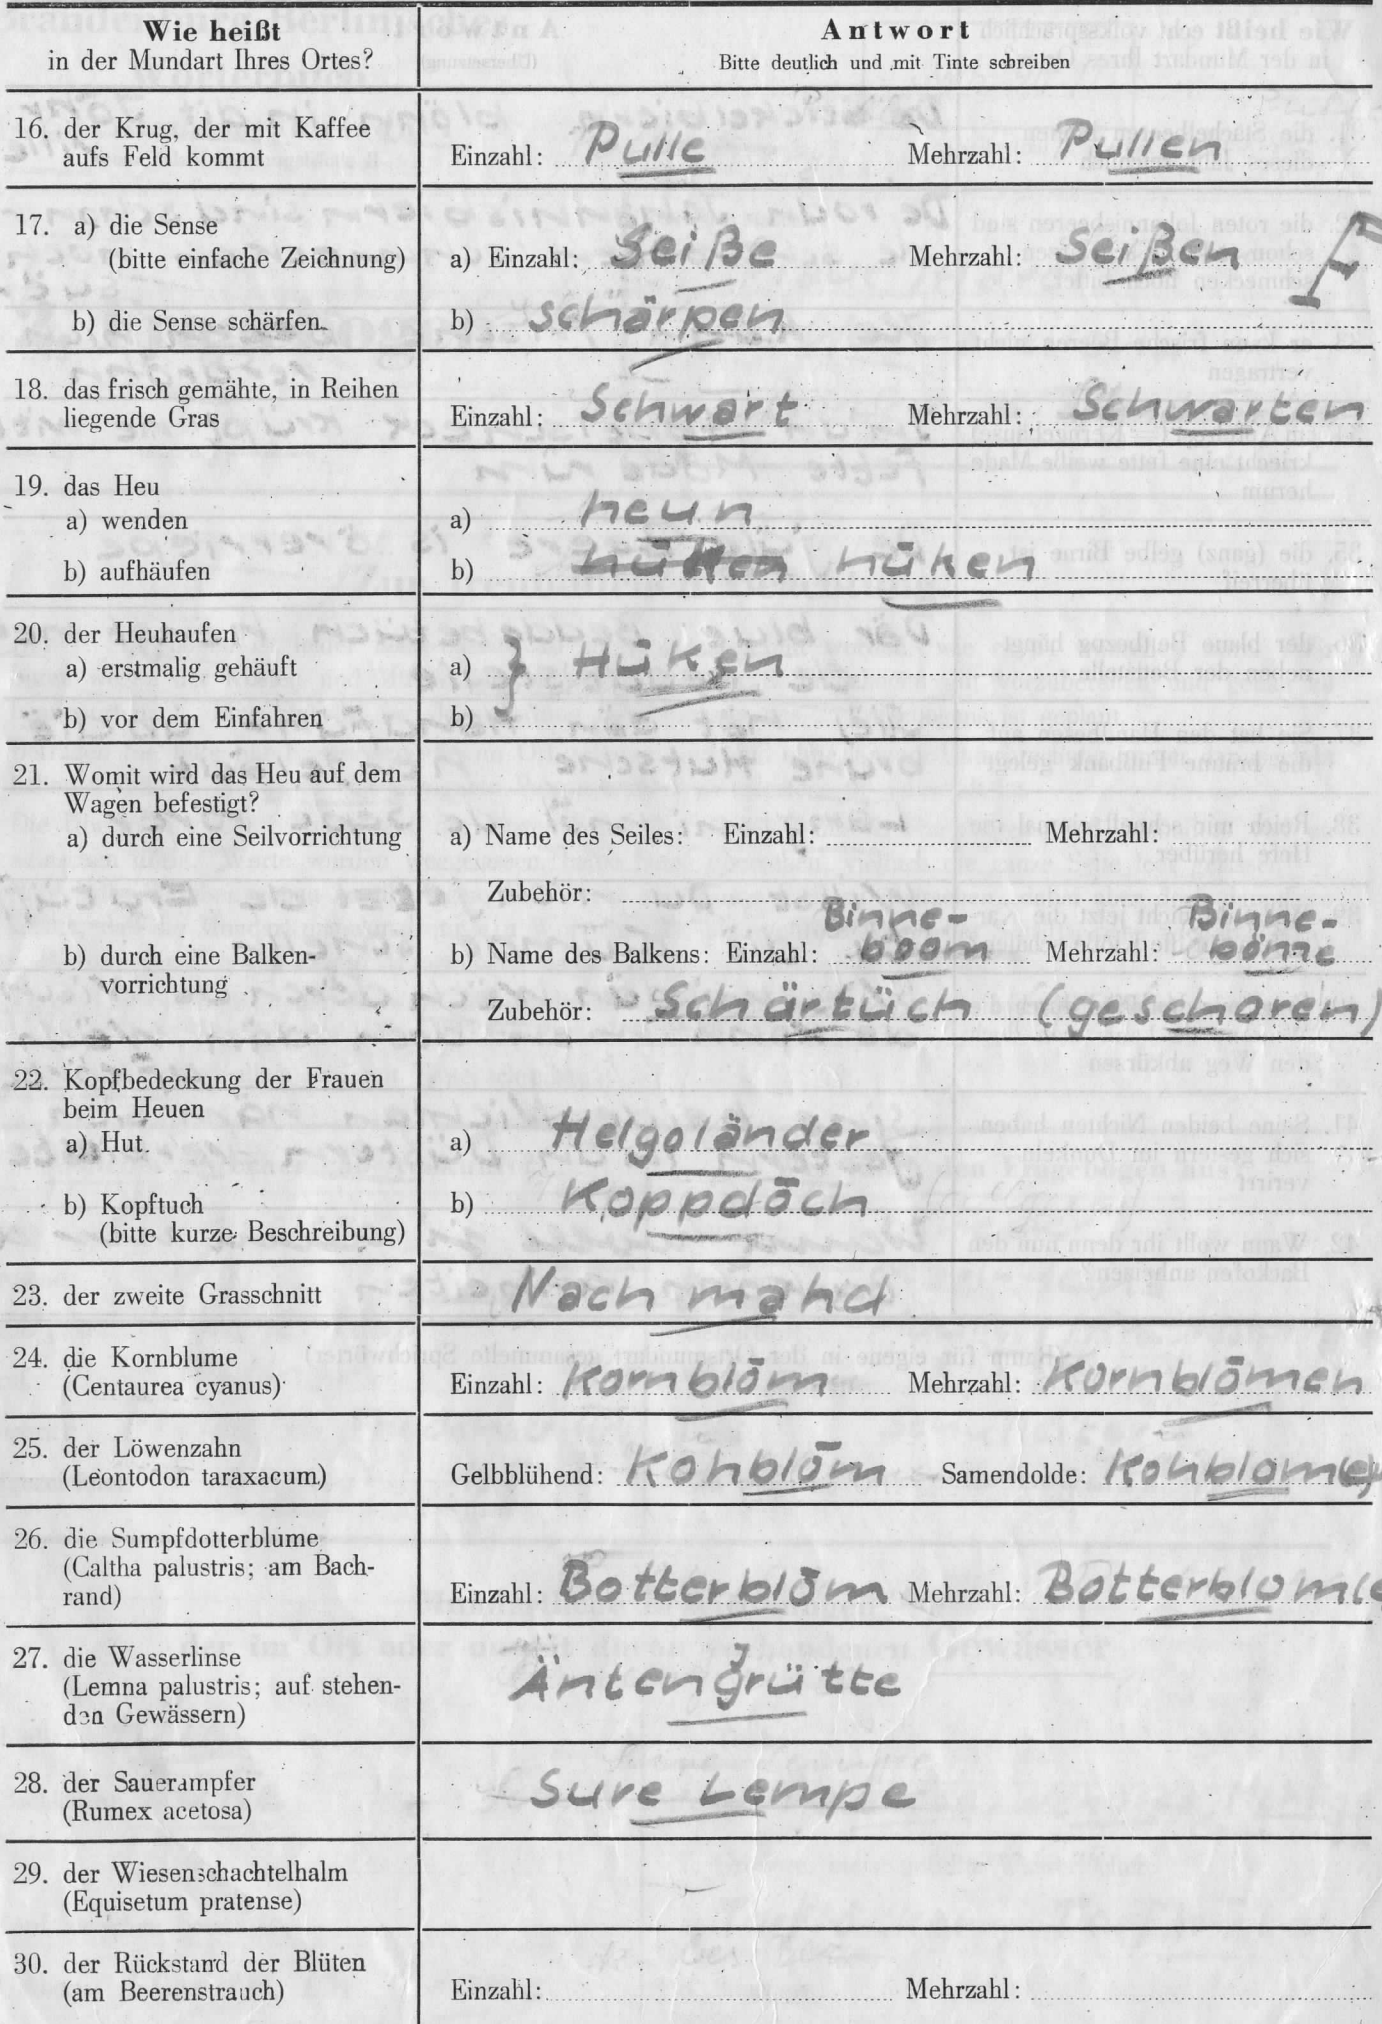 Wie heißt
in der Mundart Ihres Ortes?
Antwort
Bitte deutlich und mit Tinte schreiben
16. der Krug, der mit Kaffee
aufs Feld kommt
Einzahl: Pulle Mehrzahl: Pullen
17. a) die Sense
(bitte einfache Zeichnung)
a) Einzahl: Seiße Mehrzahl: Seißen
b) die Sense schärfen
b) schärpen
18. das frisch gemähte, in Reihen
liegende Gras
Einzahl: Schwart Mehrzahl: Schwarten
19. das Heu
a) wenden
a) heun
b) aufhäufen
b) hüken
20. der Heuhaufen
a) erstmalig gehäuft
a) } Hüken
b) vor dem Einfahren
b)
21. Womit wird das Heu auf dem
Wagen befestigt?
a) durch eine Seilvorrichtung
a) Name des Seiles: Einzahl: Mehrzahl:
Zubehör:
b) durch eine Balken-
vorrichtung
Binne- Binne-
b) Name des Balkens: Einzahl: boom Mehrzahl: böme
Zubehör: Schärtüch (geschoren)
22. Kopfbedeckung der Frauen
beim Heuen
a) Hut
a) Helgoländer
b) Kopftuch
(bitte kurze Beschreibung)
b) Koppdōch
23. der zweite Grasschnitt
Nachmahd
24. die Kornblume
(Centaurea cyanus)
Einzahl: Kornblōm Mehrzahl: Kornblōmen
25. der Löwenzahn
(Leontodon taraxacum)
Gelbblühend: Kohblōm Samendolde:
26. die Sumpfdotterblume
(Caltha palustris; am Bach-
rand)
Einzahl: Botterblōm Mehrzahl:
27. die Wasserlinse
(Lemna palustris; auf stehen-
den Gewässern)
Äntengrütte
28. der Sauerampfer
(Rumex acetosa)
Sure Lempe
29. der Wiesenschachtelhalm
(Equisetum pratense)
30. der Rückstand der Blüten
(am Beerenstrauch)
Einzahl: Mehrzahl: